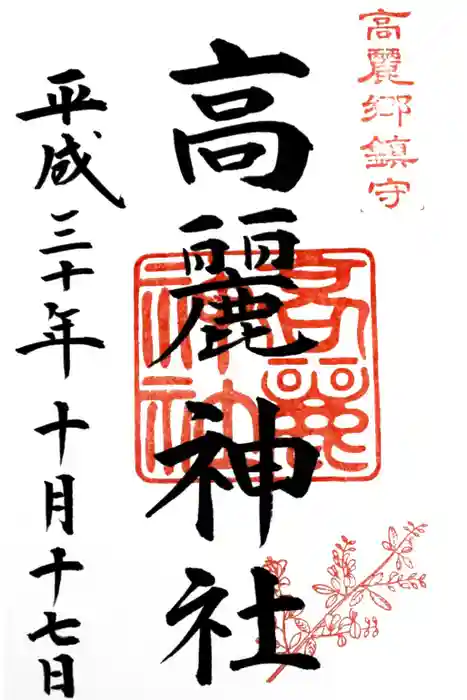 高麗郷鎮守
高麗神社
高麗神社
平成三十年十月十七日